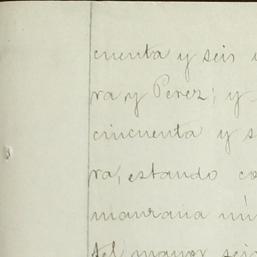 cuenta y seis
ra, y Perez; y
cincuenta y s
ra, estando co
manzana nú
del mayor seis